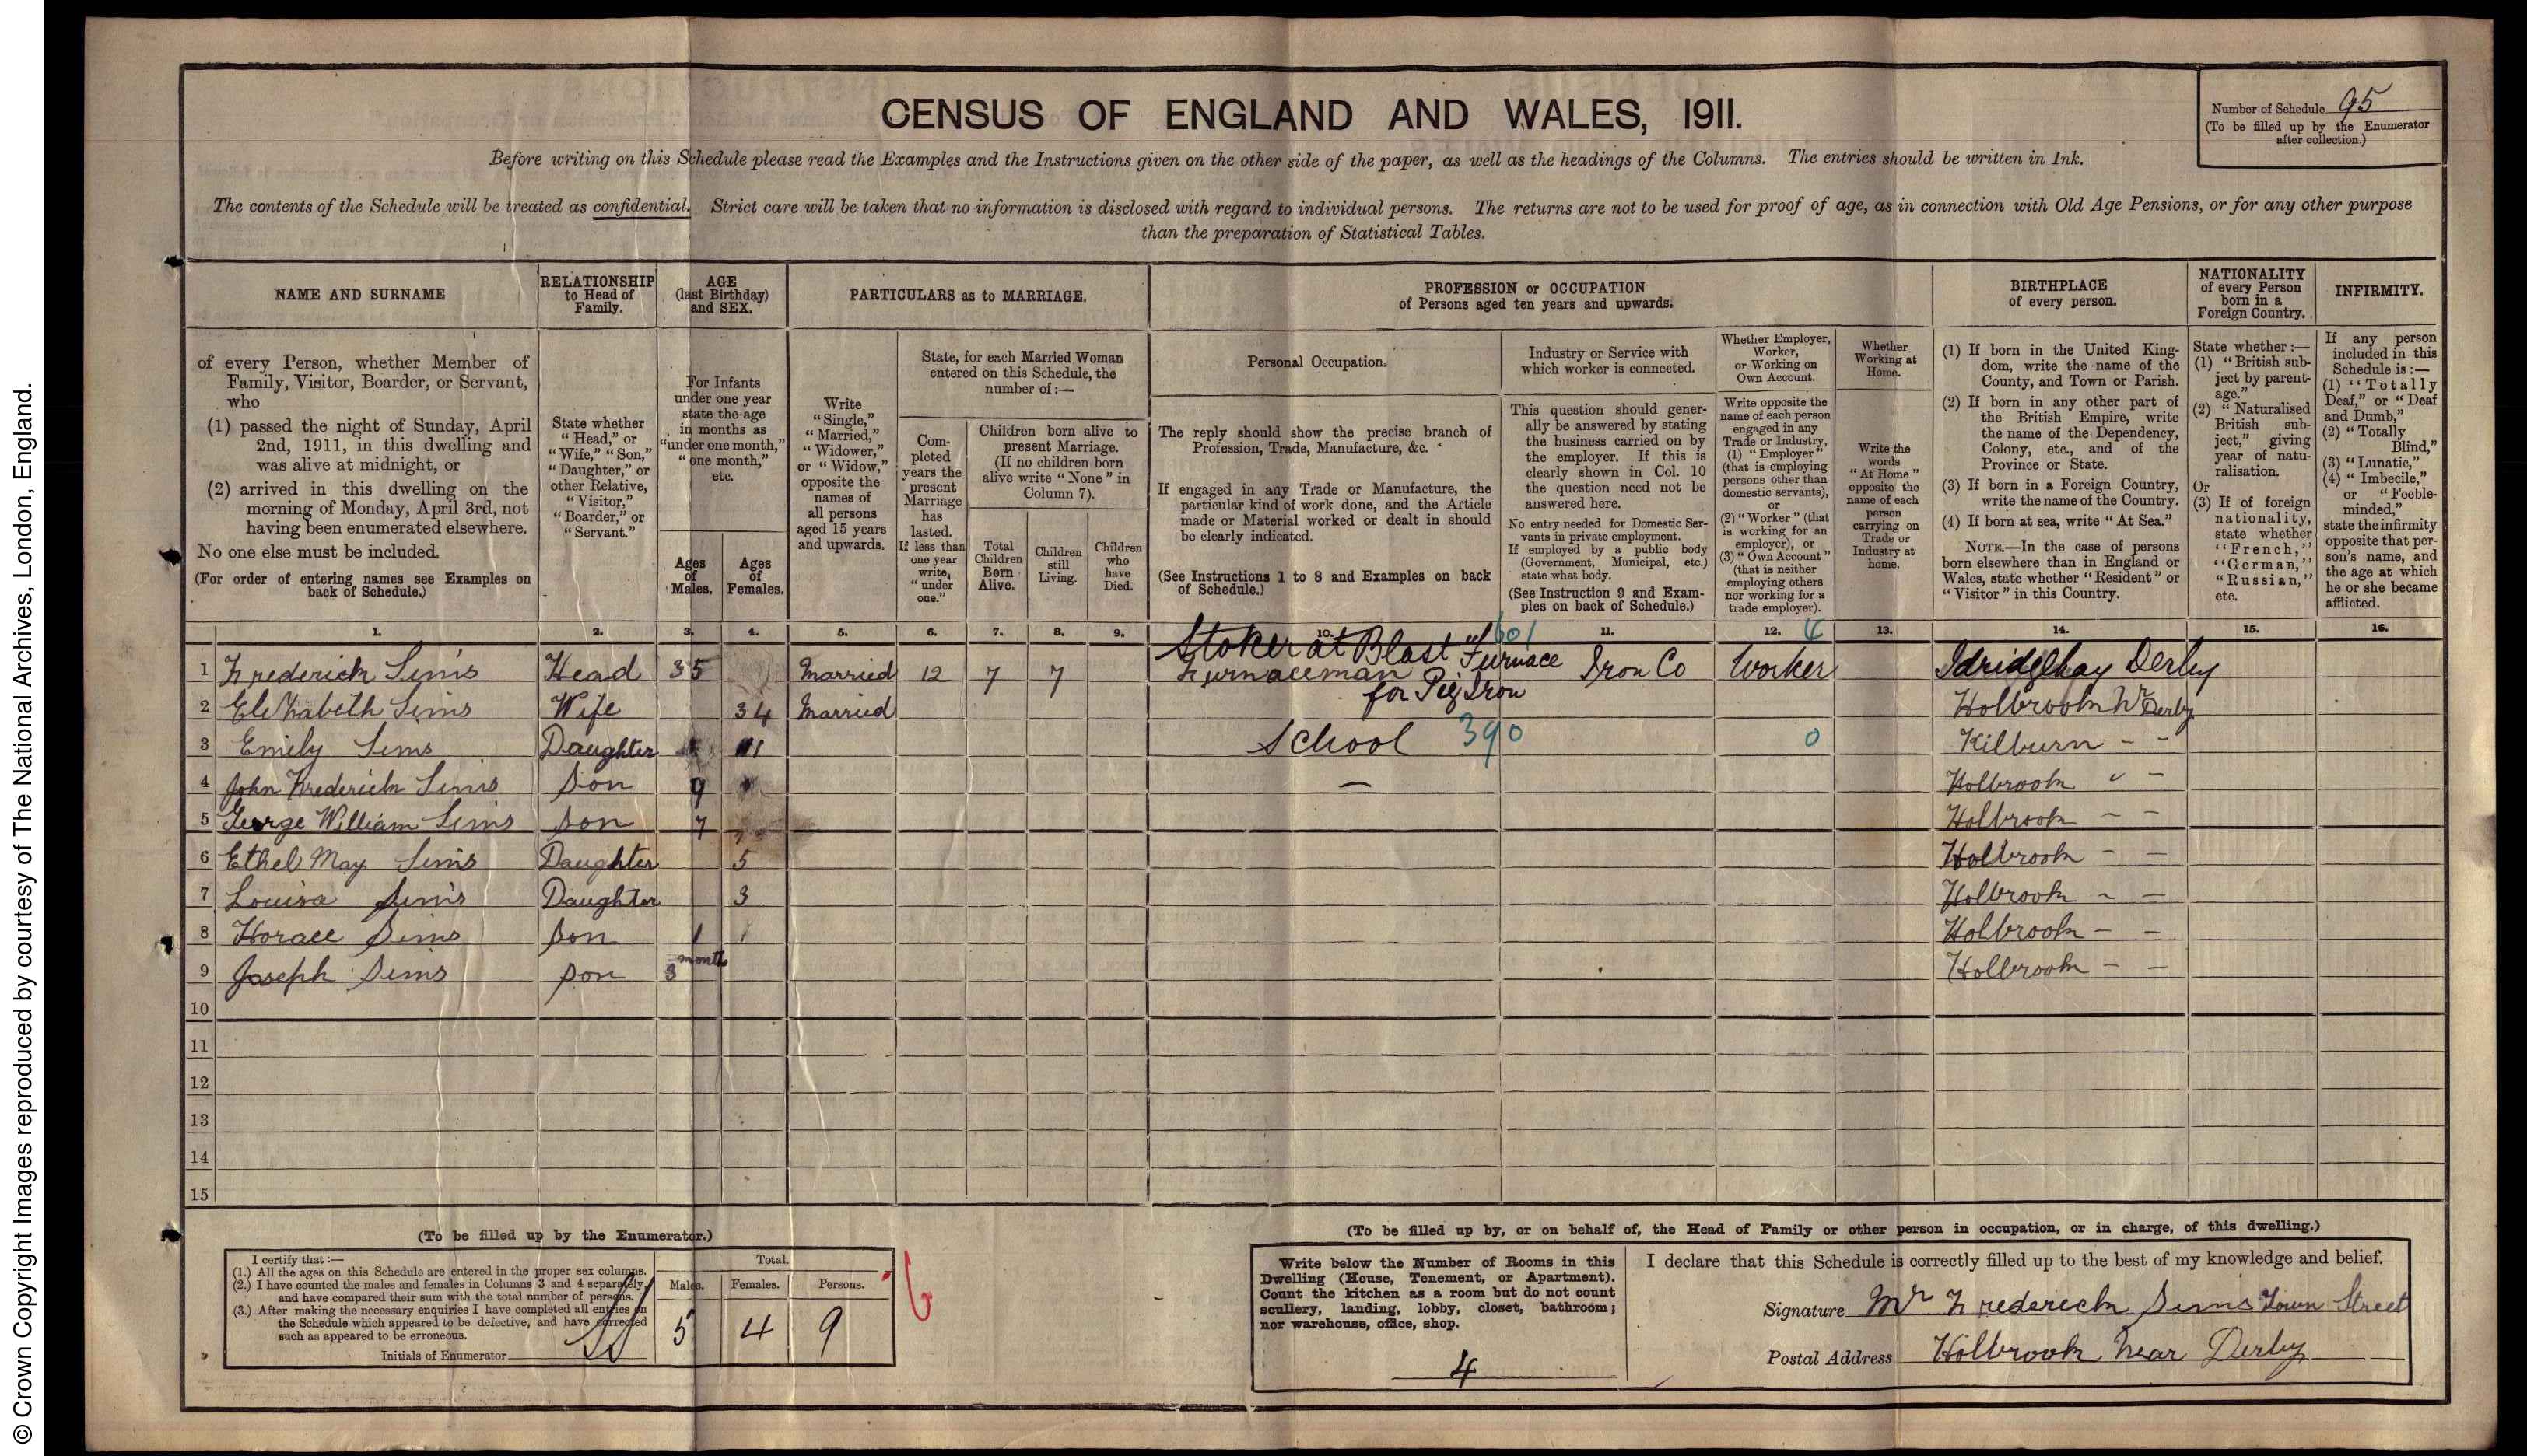 © Crown Copyright Images reproduced by courtesy of The National Archives, London, England.
CENSUS OF ENGLAND AND WALES, 1911.
Number of Schedule 95
(To be filled up by the Enumerator
after collection.)
Before writing on this Schedule please read the Examples and the Instructions given on the other side of the paper, as well as the headings of the Columns. The entries should be written in Ink.
The contents of the Schedule will be treated as confidential. Strict care will be taken that no information is disclosed with regard to individual persons. The returns are not to be used for proof of age, as in connection with Old Age Pensions, or for any other purpose
than the preparation of Statistical Tables.
NAME AND SURNAME
of every Person, whether Member of
Family, Visitor, Boarder, or Servant,
who
(1) passed the night of Sunday, April
2nd, 1911, in this dwelling and
was alive at midnight, or
(2) arrived in this dwelling on the
morning of Monday, April 3rd, not
having been enumerated elsewhere.
No one else must be included.
(For order of entering names see Examples on
back of Schedule.)
RELATIONSHIP
to Head of
Family.
State whether
"Head," or
"Wife," "Son,"
"Daughter," or
other Relative,
"Visitor,"
"Boarder," or
"Servant."
AGE
(last Birthday)
and SEX.
For Infants
under one year
state the age
in months as
"under one month,"
"one month,"
etc.
Ages
of
Males.
Ages
of
Females.
PARTICULARS as to MARRIAGE.
Write
"Single,"
"Married,"
"Widower,"
or "Widow,"
opposite the
names of
all persons
aged 15 years
and upwards.
State, for each Married Woman
entered on this Schedule, the
number of:—
Com-
pleted
years the
present
Marriage
has
lasted.
If less than
one year
write,
"under
one."
Children born alive to
present Marriage.
(If no children born
alive write "None" in
Column 7).
Total
Children
Born
Alive.
Children
still
Living.
Children
who
have
Died.
PROFESSION or OCCUPATION
of Persons aged ten years and upwards.
Personal Occupation.
The reply should show the precise branch of
Profession, Trade, Manufacture, &c.
If engaged in any Trade or Manufacture, the
particular kind of work done, and the Article
made or Material worked or dealt in should
be clearly indicated.
(See Instructions 1 to 8 and Examples on back
of Schedule.)
Industry or Service with
which worker is connected.
This question should gener-
ally be answered by stating
the business carried on by
the employer. If this is
clearly shown in Col. 10
the question need not be
answered here.
No entry needed for Domestic Ser-
vants in private employment.
If employed by a public body
(Government, Municipal, etc.)
state what body.
(See Instruction 9 and Exam-
ples on back of Schedule.)
Whether Employer,
Worker,
or Working on
Own Account.
Write opposite the
name of each person
engaged in any
Trade or Industry,
(1) "Employer"
(that is employing
persons other than
domestic servants),
or
(2) "Worker" (that
is working for an
employer), or
(3) "Own Account"
(that is neither
employing others
nor working for a
trade employer).
Whether
Working at
Home.
Write the
words
"At Home"
opposite the
name of each
person
carrying on
Trade or
Industry at
home.
BIRTHPLACE
of every person.
(1) If born in the United King-
dom, write the name of the
County, and Town or Parish.
(2) If born in any other part of
the British Empire, write
the name of the Dependency,
Colony, etc., and of the
Province or State.
(3) If born in a Foreign Country,
write the name of the Country.
(4) If born at sea, write "At Sea."
NOTE.—In the case of persons
born elsewhere than in England or
Wales, state whether "Resident" or
"Visitor" in this Country.
NATIONALITY
of every Person
born in a
Foreign Country.
State whether:—
(1) "British sub-
ject by parent-
age."
(2) "Naturalised
British sub-
ject," giving
year of natu-
ralisation.
Or
(3) If of foreign
nationality,
state whether
"French,"
"German,"
"Russian,"
etc.
INFIRMITY.
If any person
included in this
Schedule is:—
(1) "Totally
Deaf," or "Deaf
and Dumb,"
(2) "Totally
Blind,"
(3) "Lunatic,"
(4) "Imbecile,"
or "Feeble-
minded,"
state the infirmity
opposite that per-
son's name, and
the age at which
he or she became
afflicted.
1. 2. 3. 4. 5. 6. 7. 8. 9. 10. 11. 12. 13. 14. 15. 16.
Stoker at Blast Furnace 601
1 Frederick Sims Head 35 Married 12 7 7 Furnaceman Iron Co Worker Idridgehay Derby
for Pig Iron
2 Elizhabeth Sims Wife 34 Married Holbrook Nr Derby
3 Emily Sims Daughter 11 School 390 0 Kilburn - -
4 John Frederick Sims Son 9 — Holbrook " -
5 George William Sims Son 7 Holbrook - -
6 Ethel May Sims Daughter 5 Holbrook - -
7 Louisa Sims Daughter 3 Holbrook - -
8 Horace Sims Son 1 Holbrook - -
9 Joseph Sims Son 3 month Holbrook - -
10
11
12
13
14
15
(To be filled up by the Enumerator.)
I certify that:—
(1.) All the ages on this Schedule are entered in the proper sex columns.
(2.) I have counted the males and females in Columns 3 and 4 separately,
and have compared their sum with the total number of persons.
(3.) After making the necessary enquiries I have completed all entries on
the Schedule which appeared to be defective, and have corrected
such as appeared to be erroneous.
Initials of Enumerator
Total.
Males. Females. Persons.
5 4 9
6
(To be filled up by, or on behalf of, the Head of Family or other person in occupation, or in charge, of this dwelling.)
Write below the Number of Rooms in this
Dwelling (House, Tenement, or Apartment).
Count the kitchen as a room but do not count
scullery, landing, lobby, closet, bathroom;
nor warehouse, office, shop.
4
I declare that this Schedule is correctly filled up to the best of my knowledge and belief.
Signature Mr Frederick Sims Town Street
Postal Address Holbrook Near Derby